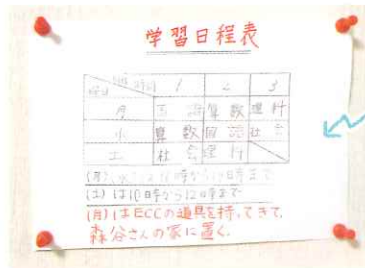 学習日程表
曜日 時間 1 2 3
月 国語 算数 理科
水 算数 国語 社会
土 社会 理科
(月)(水)は16時から19時まで
(土)は10時から12時まで
(月)はECCの道具を持ってきて、
森谷さんの家に置く。